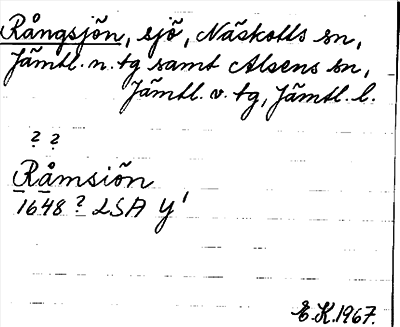 Rångsjön, sjö, Näskotts sn,
Jämtl. n. tg samt Alsens sn,
Jämtl. v. tg, Jämtl. l.
? ?
Råmsiön
1648 ? LSA Y'
E.K. 1967.